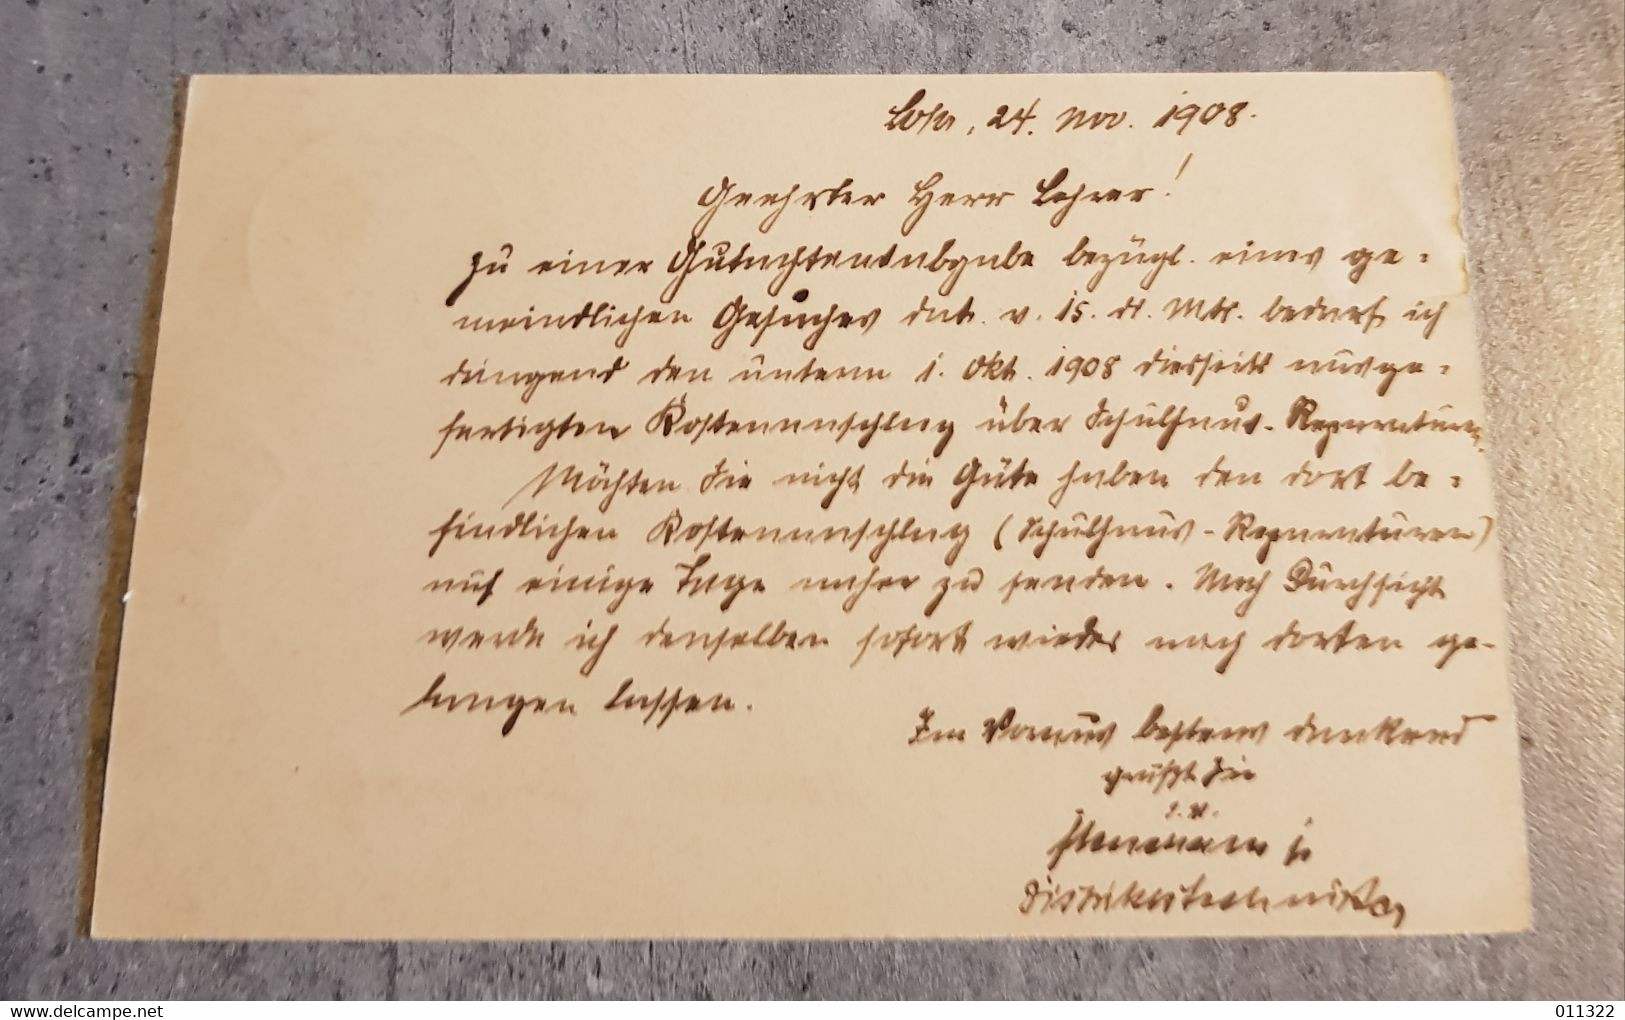 Lohr, 24. Nov. 1908.
Geehrter Herr Lehrer!
Zu einer Gutachtenabgabe bezügl. eines ge-
meindlichen Gesuches dat. v. 15. ds. Mts. bedarf ich
dringend den unterm 1. Okt. 1908 diesseits ausge-
fertigten Kostenanschlag über Schulhaus-Reparaturen.
Möchten Sie nicht die Güte haben den dort be-
findlichen Kostenanschlag (Schulhaus-Reparaturen)
auf einige Tage anher zu senden. Nach Durchsicht
werde ich denselben sofort wieder nach dorten ge-
langen lassen.
Im Voraus bestens dankend
grüßt Sie
Distriktstechniker
www.delcampe.net
011322